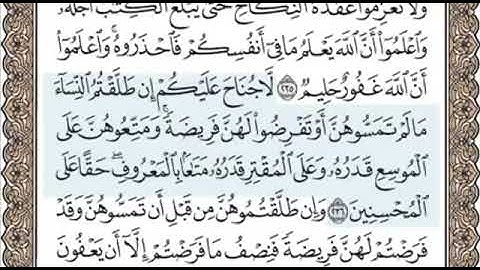 وَلَا تَعْزِمُوا۟ عُقْدَةَ ٱلنِّكَاحِ حَتَّىٰ يَبْلُغَ ٱلْكِتَٰبُ أَجَلَهُۥ
وَٱعْلَمُوٓا۟ أَنَّ ٱللَّهَ يَعْلَمُ مَا فِىٓ أَنفُسِكُمْ فَٱحْذَرُوهُ ۚ وَٱعْلَمُوٓا۟
أَنَّ ٱللَّهَ غَفُورٌ حَلِيمٌ ٢٣٥ لَّا جُنَاحَ عَلَيْكُمْ إِن طَلَّقْتُمُ ٱلنِّسَآءَ
مَا لَمْ تَمَسُّوهُنَّ أَوْ تَفْرِضُوا۟ لَهُنَّ فَرِيضَةً ۚ وَمَتِّعُوهُنَّ عَلَى
ٱلْمُوسِعِ قَدَرُهُۥ وَعَلَى ٱلْمُقْتِرِ قَدَرُهُۥ مَتَٰعًۢا بِٱلْمَعْرُوفِ ۖ حَقًّا عَلَى
ٱلْمُحْسِنِينَ ٢٣٦ وَإِن طَلَّقْتُمُوهُنَّ مِن قَبْلِ أَن تَمَسُّوهُنَّ وَقَدْ
فَرَضْتُمْ لَهُنَّ فَرِيضَةً فَنِصْفُ مَا فَرَضْتُمْ إِلَّآ أَن يَعْفُونَ